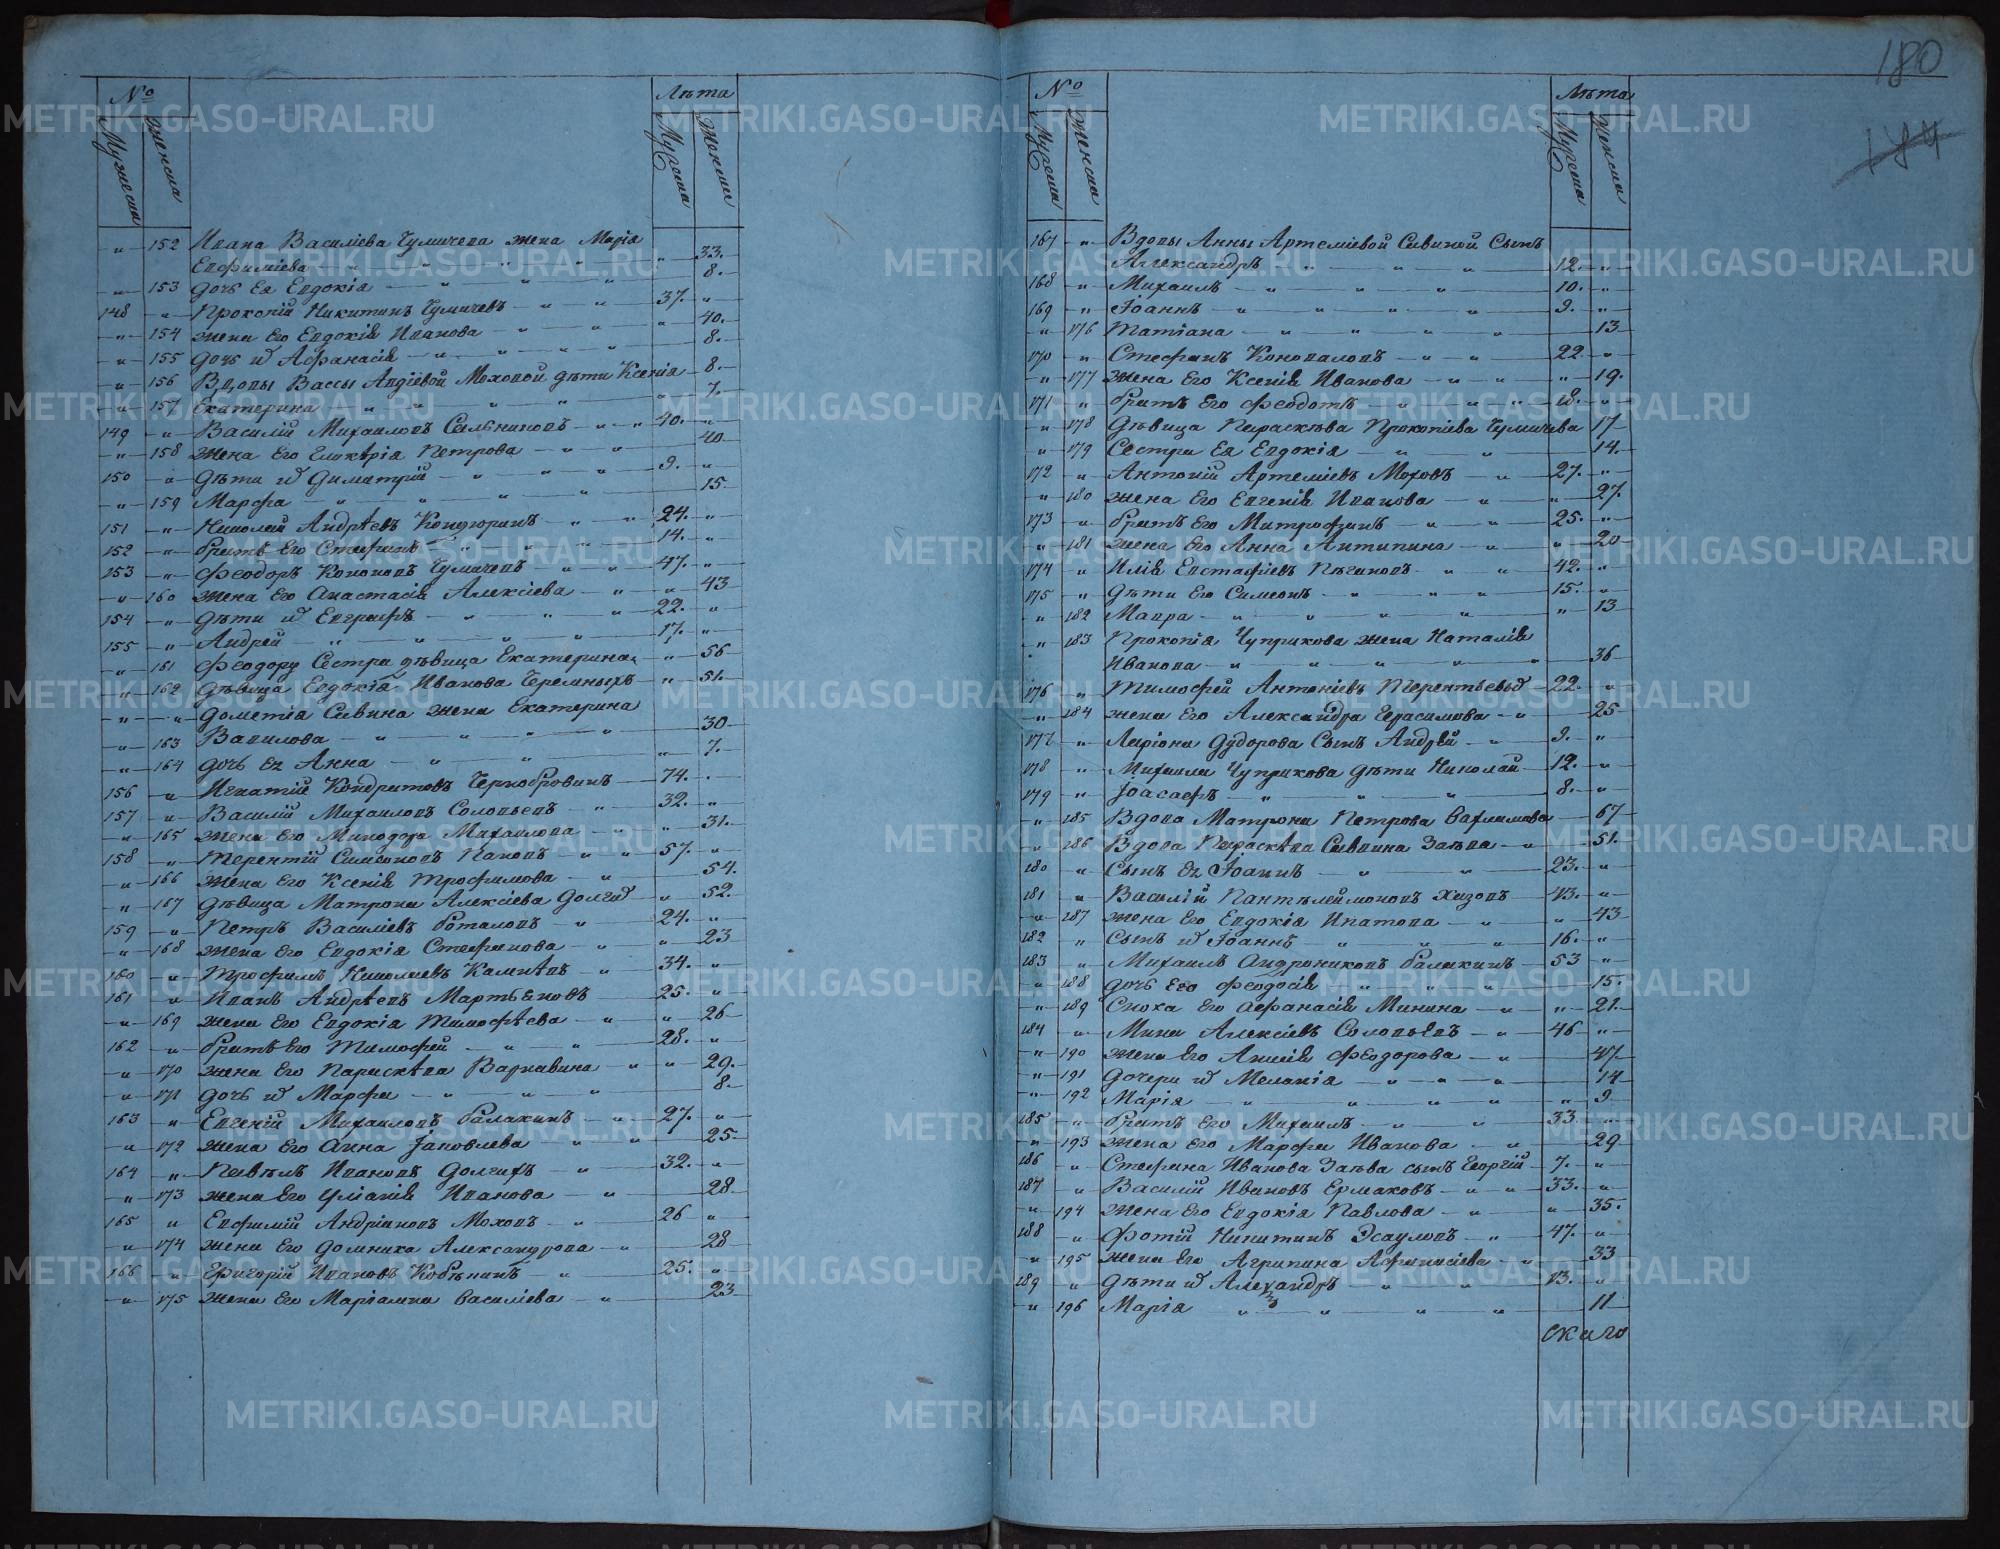 180
184
№ Лѣта
Мужеска Женска Мужеска Женска
" 152 Ивана Василіева Чумичева жена Марія
Евфиміева 33.
" 153 дочь Ея Евдокія 8.
148 " Прокопій Никитинъ Чумичевъ 37. "
" 154 жена Его Евдокія Иванова " 40.
" 155 дочь и͠х Афанасія 8.
" 156 Вдовы Вассы Авдіевой Моховой дѣти Ксенія 8.
" 157 Екатерина " 7.
149 " Василій Михаиловъ Сальниковъ 40. "
" 158 жена Его Еликтрія Петрова 40
150 " дѣти и͠х Димитрій 9. "
" 159 Марфа 15
151 " Николай Андрѣевъ Кондюринъ 24. "
152 " братъ Его Стефанъ 14. "
153 " Феодоръ Кононовъ Чумичевъ 47. "
" 160 жена Его Анастасія Алексіева " 43
154 " дѣти и͠х Евграфъ 22. "
155 " Андрей 17. "
" 161 Феодору Сестра дѣвица Екатерина " 56
" 162 дѣвица Евдокія Иванова Черемныхъ " 51.
" " Дометіа Сивина жена Екатерина
" 163 Вавилова 30
" 164 дочь Ея Анна " 7.
156 " Игнатій Кондратовъ Чернобровинъ 74. "
157 " Василій Михаиловъ Соловьевъ 32. "
" 165 жена Его Минодора Михаилова " 31.
158 " Терентій Симеоновъ Пановъ 57. "
" 166 жена Его Ксенія Трофимова 54.
" 167 дѣвица Матрона Алексіева Долгих " 52.
159 " Петръ Василіевъ Боталовъ 24. "
" 168 жена Его Евдокія Стефанова " 23
160 " Трофимъ Николаевъ 34. "
161 " Иванъ Андрѣевъ Мартьяновъ 25. "
" 169 жена Его Евдокія Тимофѣева " 26
162 " братъ Его Тимофей 28. "
" 170 жена Его Параскѣва Варнавина " 29.
" 171 дочь и͠х Марфа 8.
163 " Евгеній Михаиловъ Балакинъ 27. "
" 172 жена Его Анна Іаковлева 25.
164 " Павелъ Ивановъ Долгихъ 32. "
" 173 жена Его Уліанія Иванова 28.
165 " Евфимій Андріановъ Моховъ 26 "
" 174 жена Его Домника Александрова 28
166 " Григорій Ивановъ 25. "
" 175 жена Его Маріамна Василіева 23
№ Лѣта
Мужеска Женска Мужеска Женска
167 " Вдовы Анны Артеміевой Сивиной Сынъ
Александръ 12. "
168 " Михаилъ 10. "
169 " Іоаннъ 9. "
" 176 Татіана 13
170 " Стефанъ Коноваловъ 22. "
" 177 жена Его Ксенія Иванова " 19.
171 " братъ Его Феодотъ 18. "
" 178 дѣвица Параскѣва Прокопіева Чумичева 17
" 179 Сестра Ея Евдокія 14.
172 " Антоній Артеміевъ Моховъ 27. "
" 180 жена Его Евгенія Иванова " 27.
173 " братъ Его Митрофанъ 25. "
" 181 жена Его Анна Антипина " 20
174 " Илія Евстафіевъ Пѣгановъ 42. "
175 " дѣти Его Симеонъ 15. "
" 182 Мавра " 13
" 183 Прокопія Чуприкова жена Наталія
Иванова 36
176 " Тимофей Антоніевъ Терентьевых 22. "
" 184 жена Его Александра Герасимова 25
177 " Ларіона Дудорова Сынъ Андрей 9. "
178 " Михаила Чуприкова дѣти Николай 12. "
179 " Іоасафъ 8. "
" 185 Вдова Матрона Петрова 67
" 186 Вдова Параскѣва Саввина Заѣва 51.
180 " Сынъ Ея Іоаннъ 23. "
181 " Василій Пантѣлеймоновъ Хизовъ 43. "
" 187 жена Его Евдокія Ипатова " 43
182 " сынъ и͠х Іоаннъ 16. "
183 " Михаилъ Андрониковъ Балакинъ 53 "
" 188 дочь Его Феодосія " 15.
" 189 Сноха Его Афанасія Минина " 21.
184 " Мина Алексіевъ Соловьевъ 46 "
" 190 жена Его Анисія Феодорова 47
" 191 дочери и͠х Меланія 14
" 192 Марія " 9
185 " братъ Его Михаилъ 33. "
" 193 жена Его Марфа Иванова 29
186 " Стефана Иванова Заѣва сынъ Георгій 7. "
187 " Василій Ивановъ Ермаковъ 33. "
" 194 жена Его Евдокія Павлова " 35.
188 " Фотій Никитинъ Эсауловъ 47. "
" 195 жена Его Агрипина Афанасіева 33
189 " дѣти и͠х Александръ 13. "
" 196 Марія 11